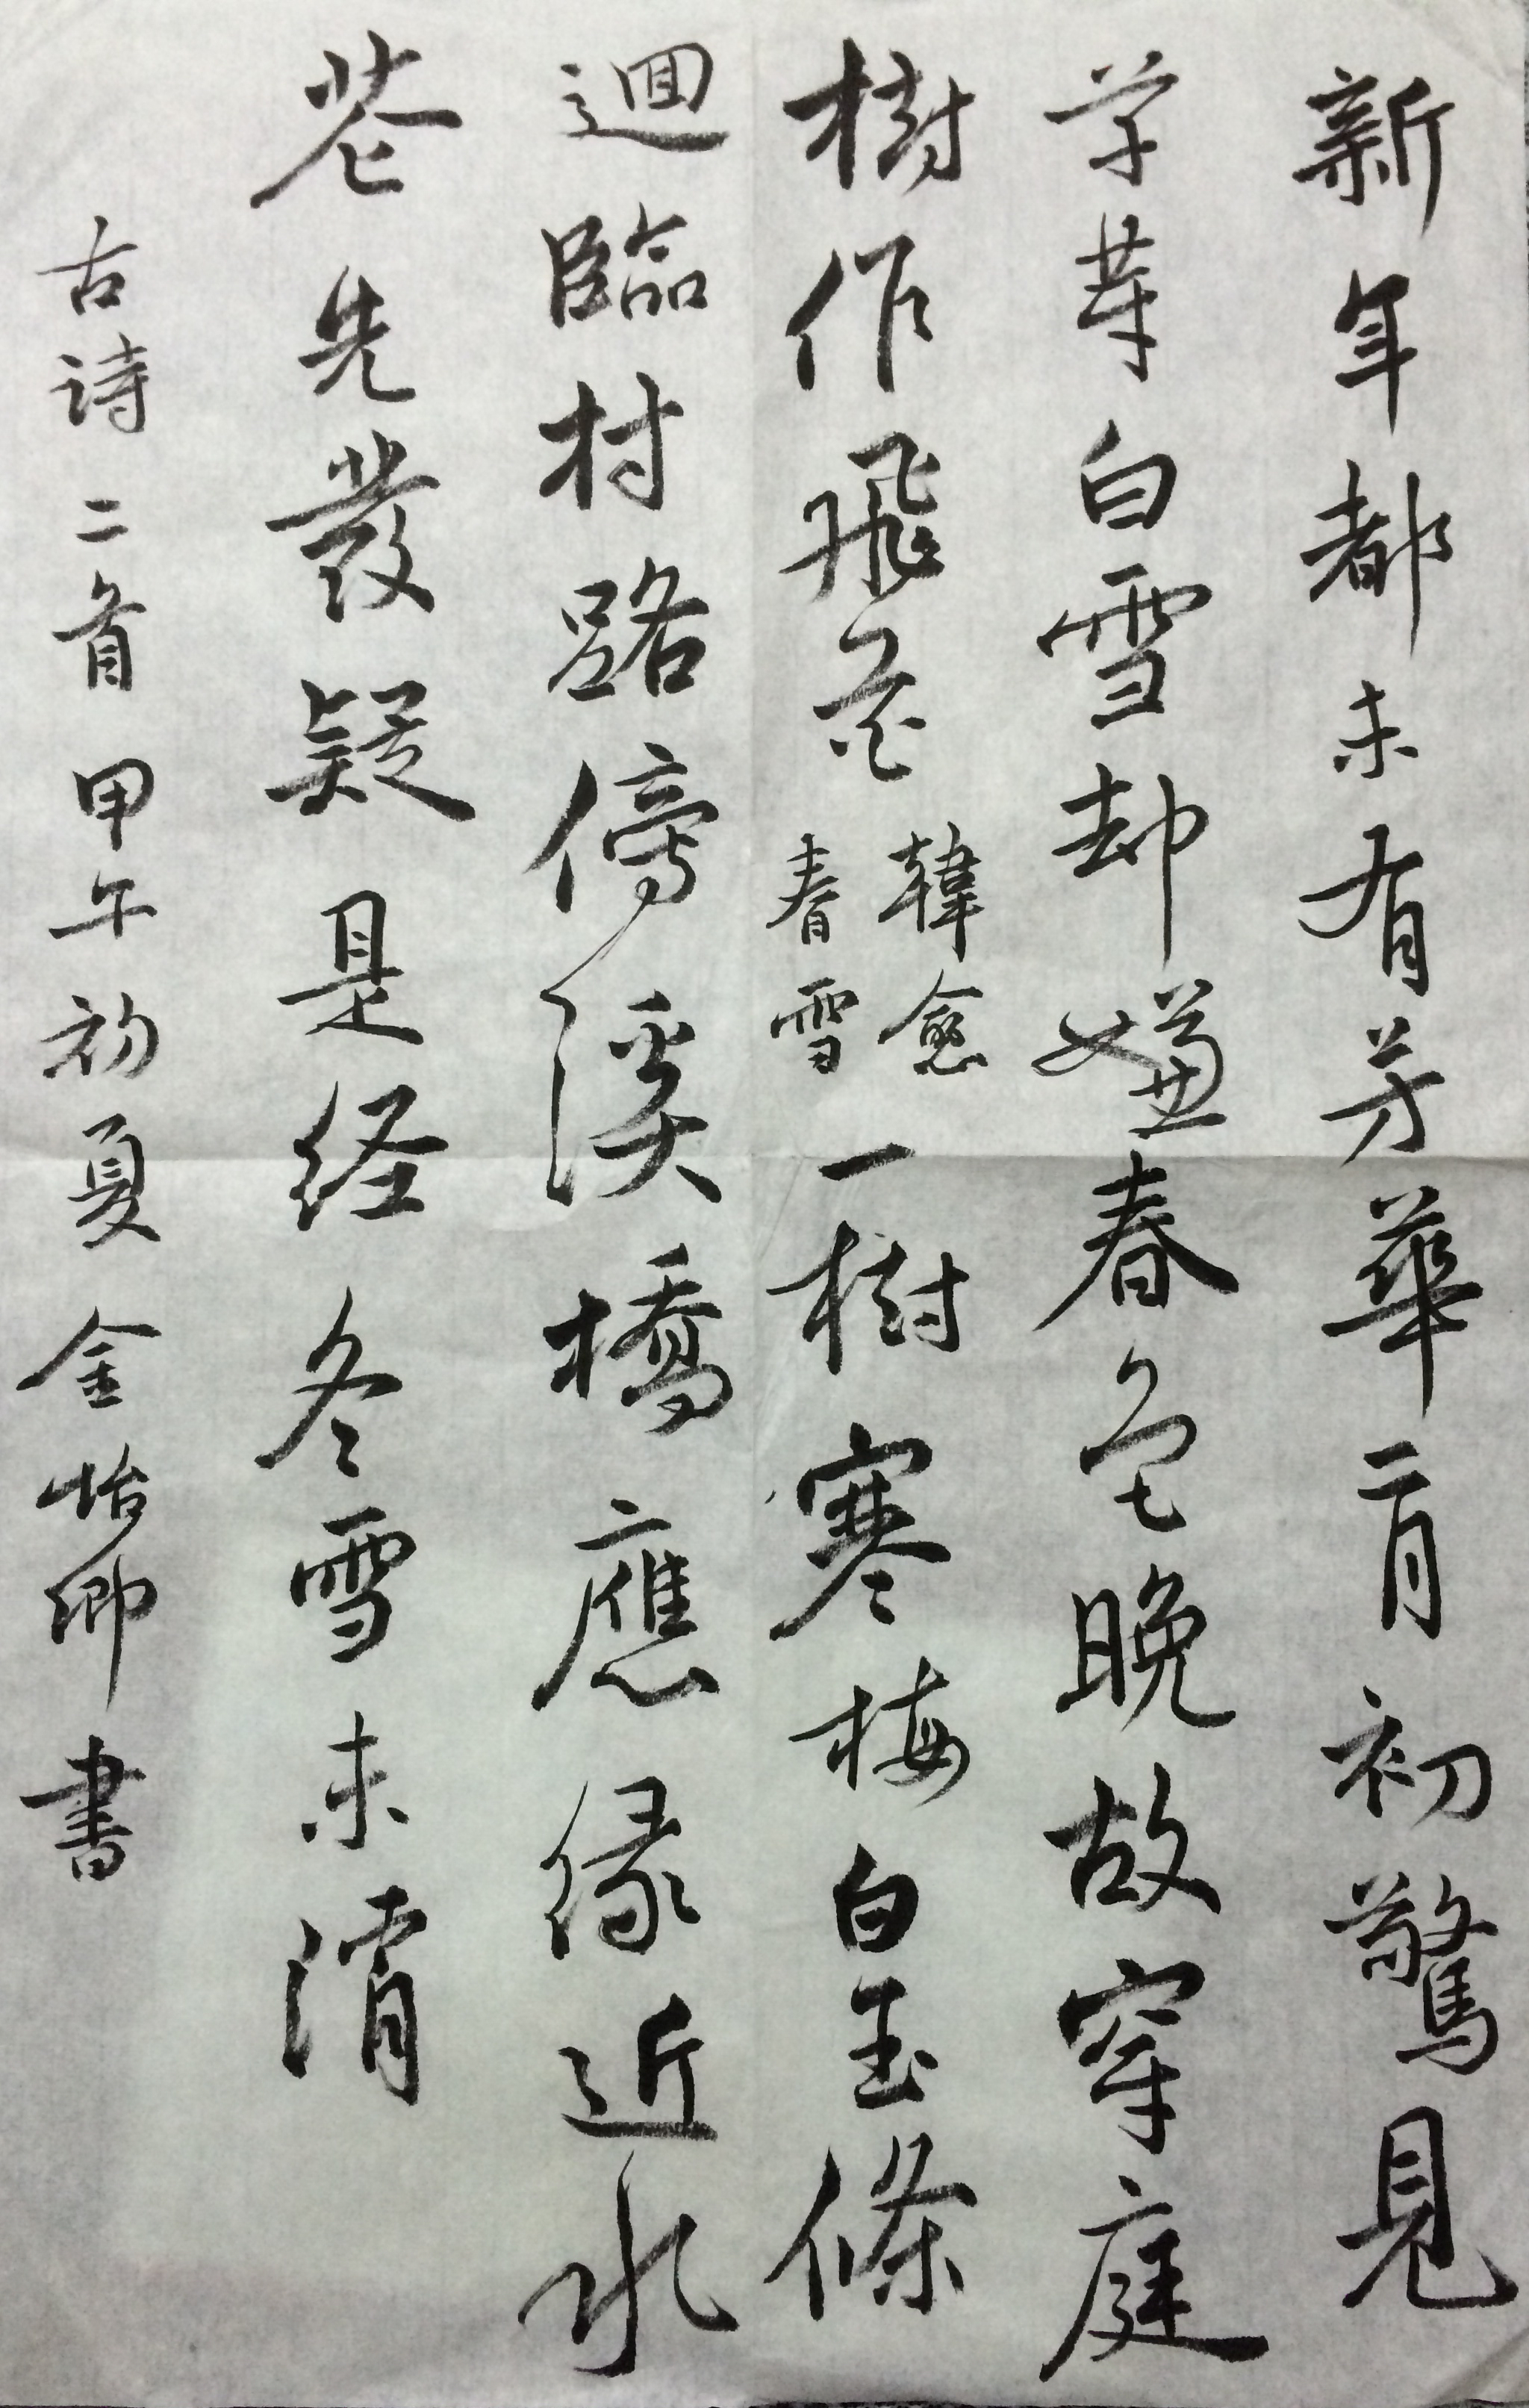 新年都未有芳華二月初驚見
草芽白雪却嫌春色晚故穿庭
樹作飛花 韓愈 春雪 一樹寒梅白玉條
迴臨村路傍溪橋應緑近水
花先發疑是经冬雪未消
古诗二首 甲午初夏 金怡卿書